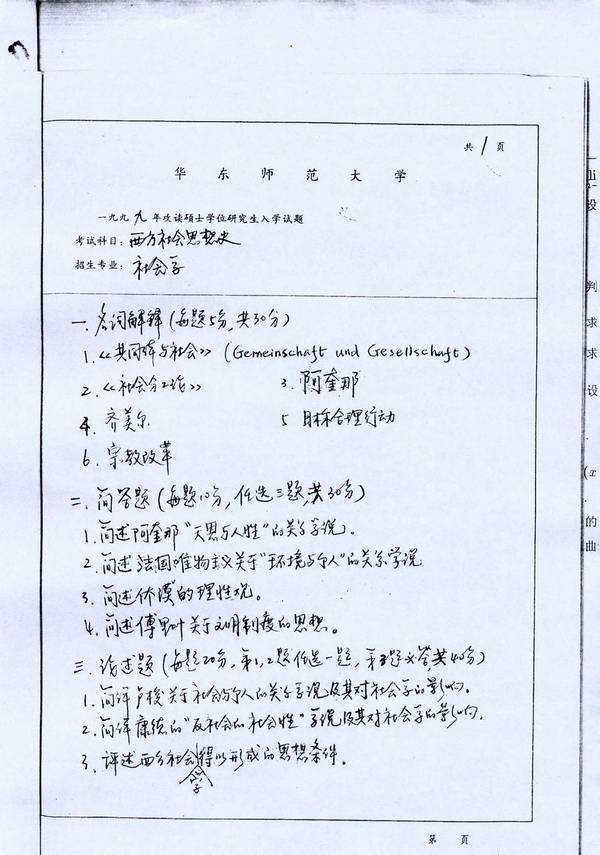 共1页
华东师范大学
一九九九年攻读硕士学位研究生入学试题
考试科目：西方社会思想史
招生专业：社会学
一、名词解释(每题5分,共30分)
1.《共同体与社会》(Gemeinschaft und Gesellschaft)
2.《社会分工论》 3.阿奎那
4.齐美尔 5 目标合理行动
6.宗教改革
二.简答题(每题10分,任选三题,共30分)
1.简述阿奎那"天恩与人性"的关系学说。
2.简述法国唯物主义关于"环境与个人"的关系学说
3.简述休谟的理性观。
4.简述傅里叶关于文明制度的思想。
三.论述题(每题20分,第1,2题任选一题,第3题必答,共40分)
1.简评卢梭关于社会与个人的关系学说及其对社会学的影响。
2.简评康德的"反社会的社会性"学说及其对社会学的影响。
3.评述西方社会学得以形成的思想条件。
第 页
li
设
判
求
求
设
(x
的
曲